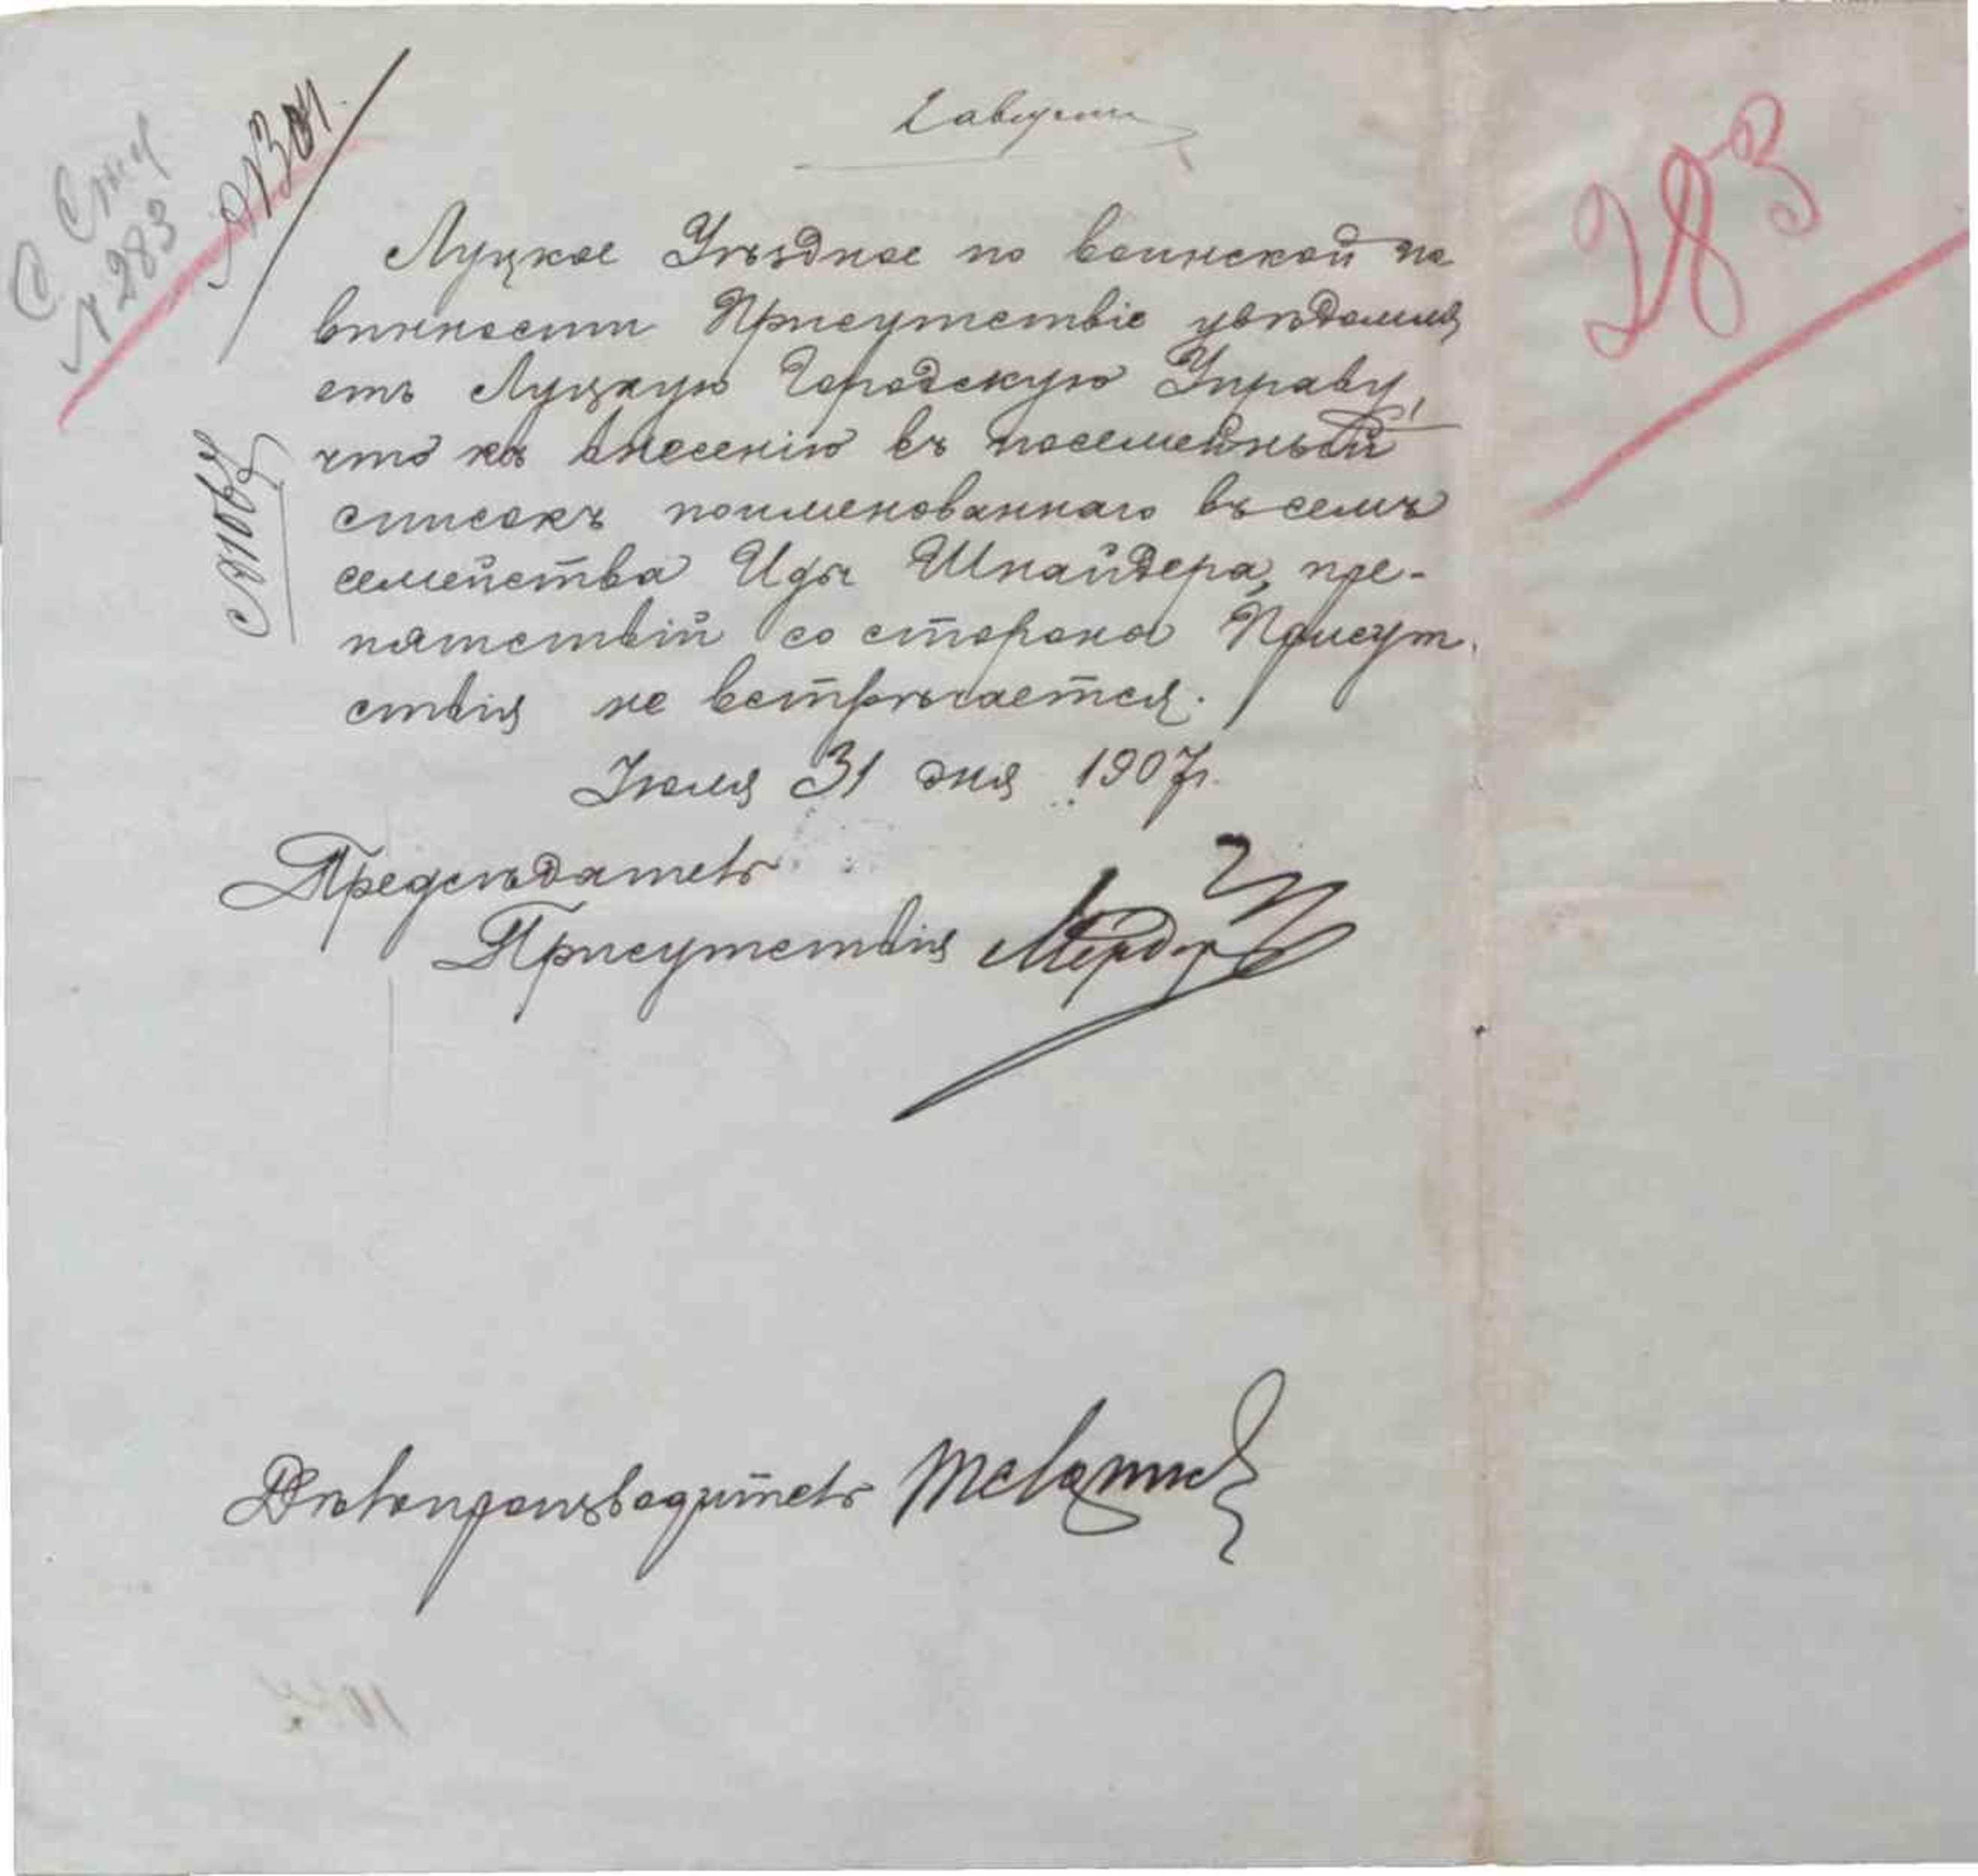 2 августа
283
№ 283
Луцкое Уѣздное по воинской по
винности Присутствіе увѣдомля
етъ Луцкую Городскую Управу,
что къ внесенію въ посемейный
списокъ поименованнаго въ семъ
семейства Иды Шнайдера, пре-
пятствій со стороны Присут.
ствія не встрѣчается.
Іюля 31 дня 1907 г.
Предсѣдатель
Присутствія
Дѣлопроизводитель